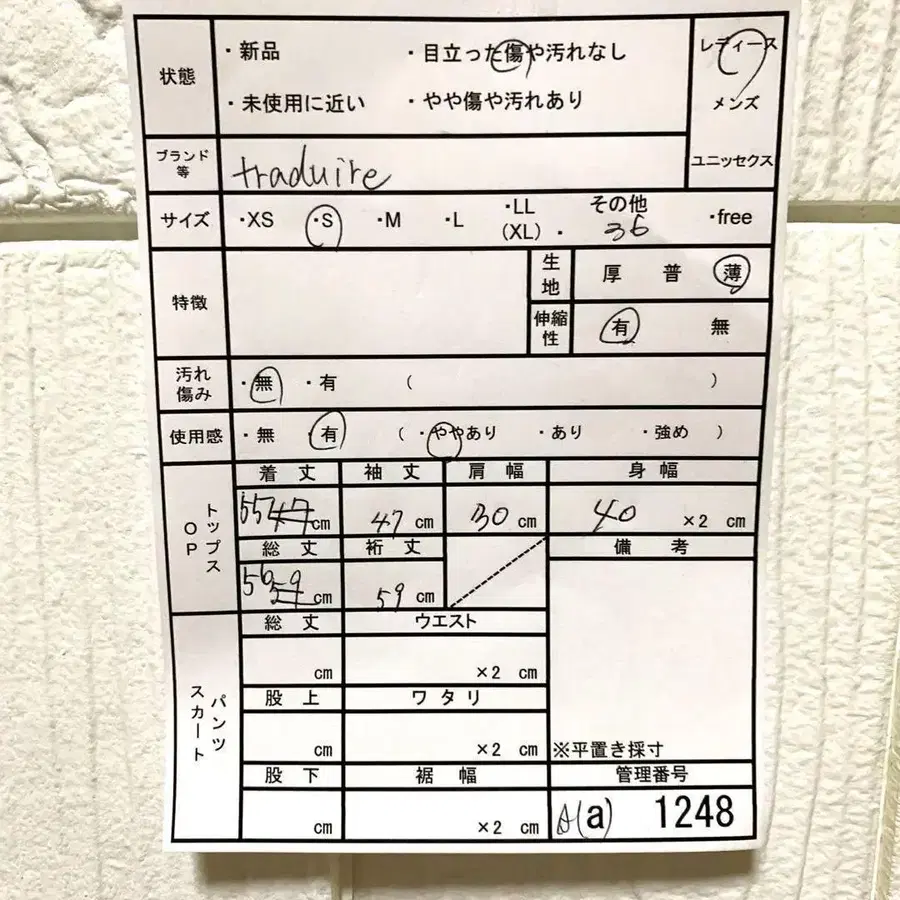 状態
・新品 ・目立った傷や汚れなし
・未使用に近い ・やや傷や汚れあり
レディース
メンズ
ユニセックス
ブランド等
traduire
サイズ ・XS ・S ・M ・L ・LL (XL) ・ その他 36 ・free
特徴
生地 厚 普 薄
伸縮性 有 無
汚れ傷み ・無 ・有 ( )
使用感 ・無 ・有 ( ・ややあり ・あり ・強め )
トップス OP
着丈 袖丈 肩幅 身幅
55 47 cm 47 cm 30 cm 40 ×2 cm
総丈 裄丈 備考
56 59 cm 59 cm
パンツ スカート
総丈 ウエスト
cm ×2 cm
股上 ワタリ
cm ×2 cm
※平置き採寸
股下 裾幅 管理番号
cm ×2 cm (a) 1248